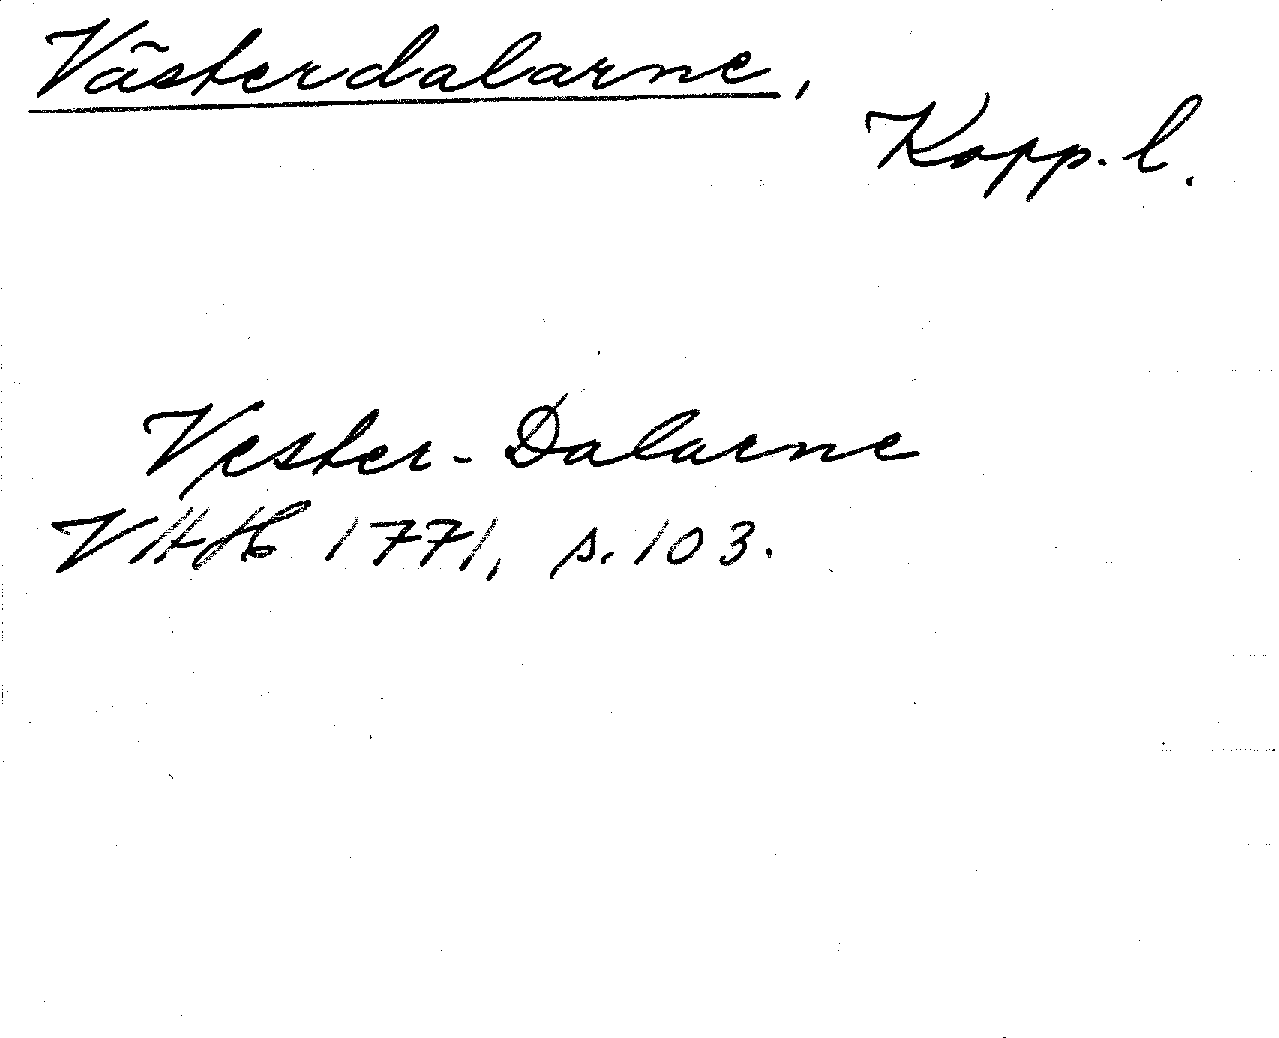 Västerdalarne,
Kopp. l.
Vester-Dalarne
VAH 1771, s. 103.